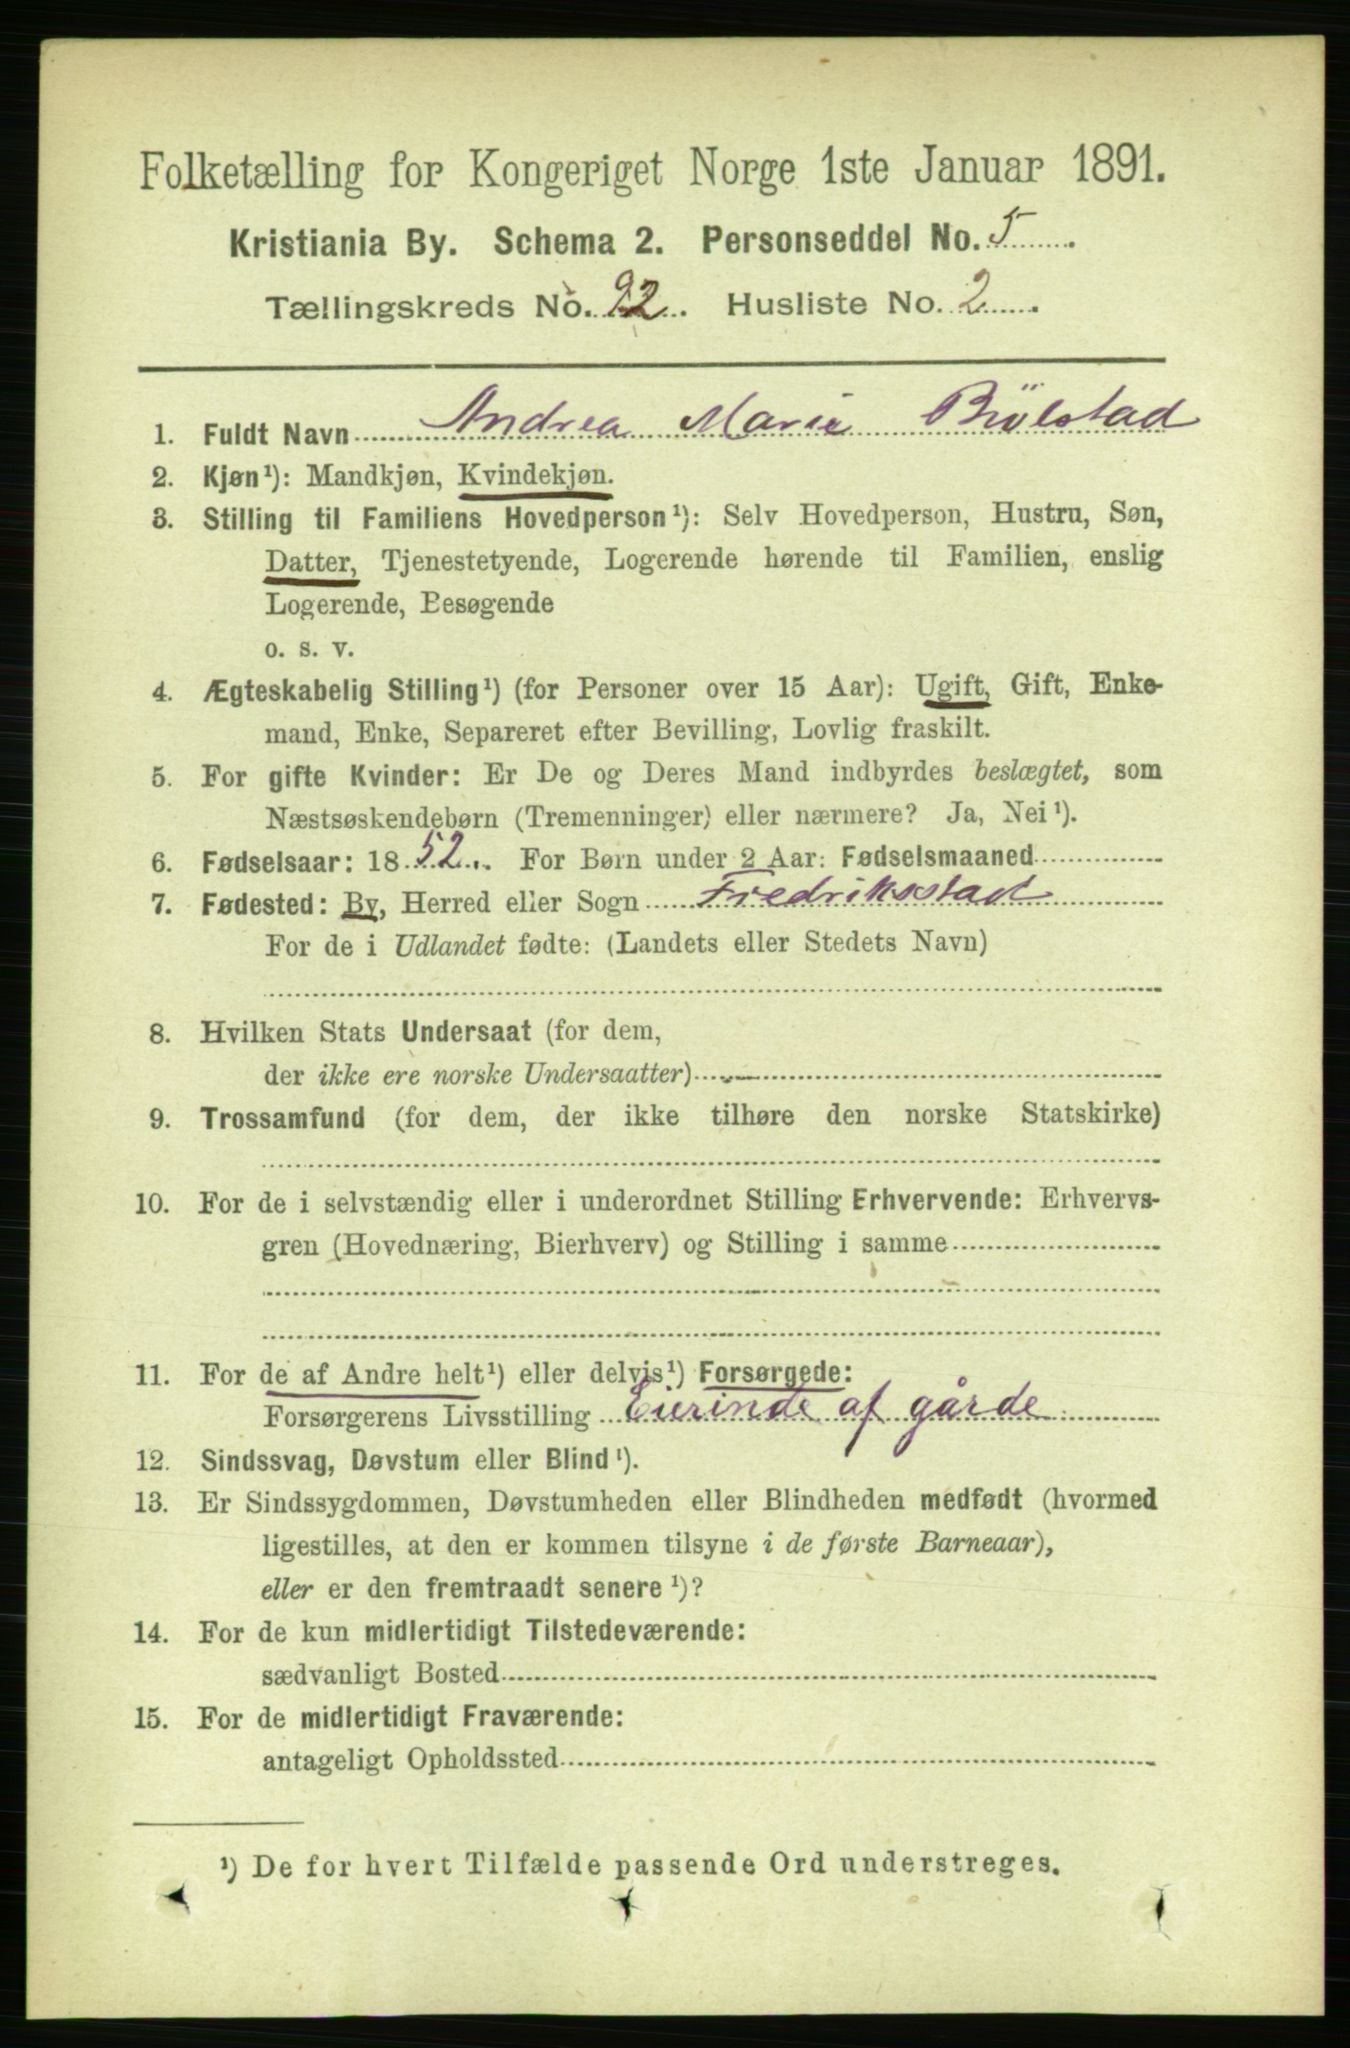 Folketælling for Kongeriget Norge 1ste Januar 1891.
Kristiania By. Schema 2. Personseddel No. 5
Tællingskreds No. 92. Husliste No. 2
1. Fuldt Navn Andrea Marie Bölstad
2. Kjøn¹): Mandkjøn, Kvindekjøn.
3. Stilling til Familiens Hovedperson¹): Selv Hovedperson, Hustru, Søn,
Datter, Tjenestetyende, Logerende hørende til Familien, enslig
Logerende, Besøgende
o. s. v.
4. Ægteskabelig Stilling¹) (for Personer over 15 Aar): Ugift, Gift, Enke-
mand, Enke, Separeret efter Bevilling, Lovlig fraskilt.
5. For gifte Kvinder: Er De og Deres Mand indbyrdes beslægtet, som
Næstsøskendebørn (Tremenninger) eller nærmere? Ja, Nei¹).
6. Fødselsaar: 1852. For Børn under 2 Aar: Fødselsmaaned
7. Fødested: By, Herred eller Sogn Fredriksstad
For de i Udlandet fødte: (Landets eller Stedets Navn)
8. Hvilken Stats Undersaat (for dem,
der ikke ere norske Undersaatter)
9. Trossamfund (for dem, der ikke tilhøre den norske Statskirke)
10. For de i selvstændig eller i underordnet Stilling Erhvervende: Erhvervs-
gren (Hovednæring, Bierhverv) og Stilling i samme
11. For de af Andre helt¹) eller delvis¹) Forsørgede:
Forsørgerens Livsstilling Eierinde af gårde
12. Sindssvag, Døvstum eller Blind¹).
13. Er Sindssygdommen, Døvstumheden eller Blindheden medfødt (hvormed
ligestilles, at den er kommen tilsyne i de første Barneaar),
eller er den fremtraadt senere¹)?
14. For de kun midlertidigt Tilstedeværende:
sædvanligt Bosted
15. For de midlertidigt Fraværende:
antageligt Opholdssted
¹) De for hvert Tilfælde passende Ord understreges.